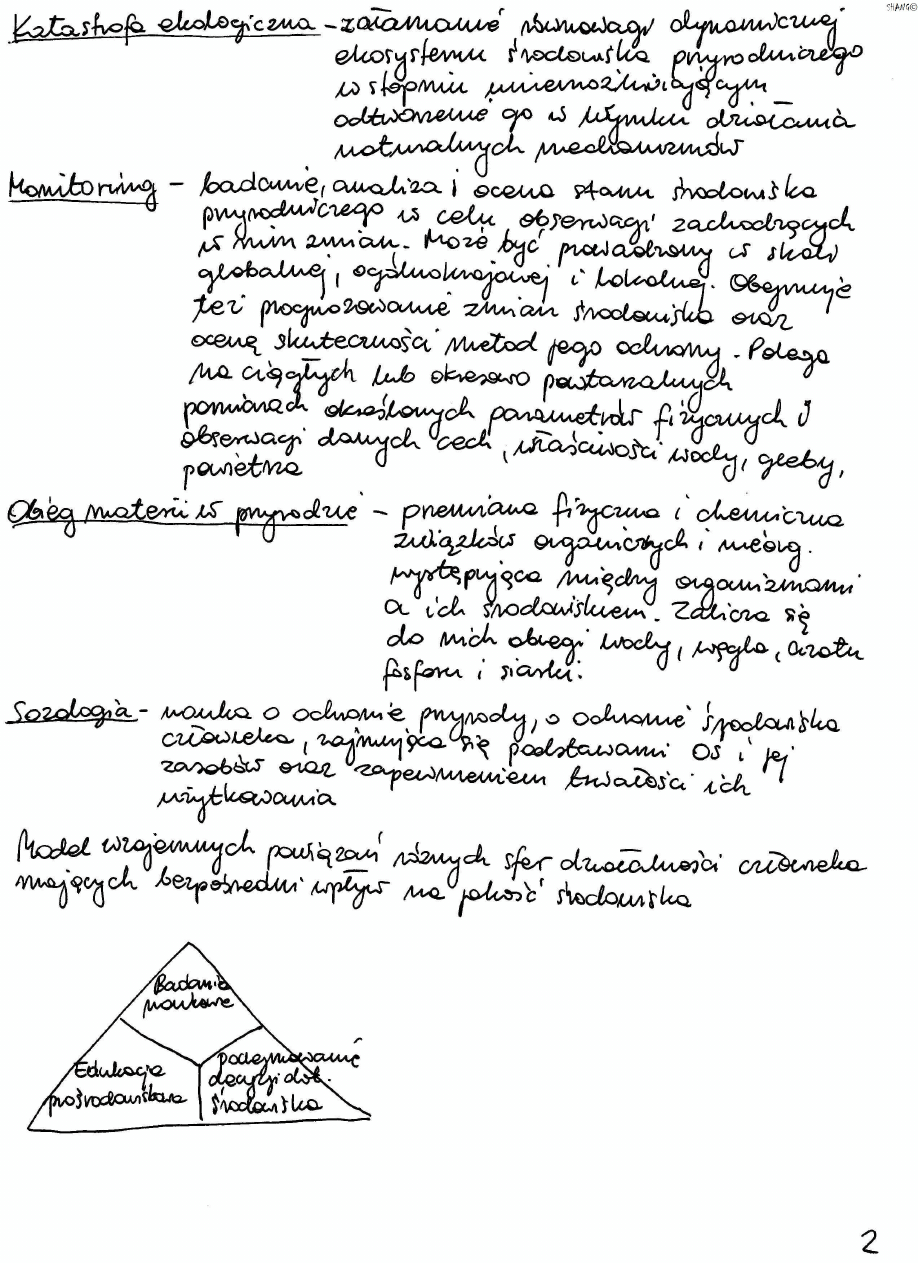 SHANG©
Katastrofa ekologiczna - załamanie równowagi dynamicznej
ekosystemu środowiska przyrodniczego
w stopniu uniemożliwiającym
odtworzenie go w wyniku działania
naturalnych mechanizmów
Monitoring - badanie, analiza i ocena stanu środowiska
przyrodniczego w celu obserwacji zachodzących
w nim zmian. Może być prowadzony w skali
globalnej, ogólnokrajowej i lokalnej. Obejmuje
też prognozowanie zmian środowiska oraz
ocenę skuteczności metod jego ochrony. Polega
na ciągłych lub okresowo powtarzalnych
pomiarach określonych parametrów fizycznych i
obserwacji danych cech, właściwości wody, gleby,
powietrza
Obieg materii w przyrodzie - przemiana fizyczna i chemiczna
związków organicznych i nieorg.
występująca między organizmami
a ich środowiskiem. Zalicza się
do nich obiegi wody, węgla, azotu
fosforu i siarki.
Sozologia - nauka o ochronie przyrody, o ochronie środowiska
człowieka, zajmująca się podstawami OŚ i jej
zasobów oraz zapewnieniem trwałości ich
użytkowania
Model wzajemnych powiązań różnych sfer działalności człowieka
mających bezpośredni wpływ na jakość środowiska
Badania
naukowe
Edukacja
prośrodowiskowa
podejmowanie
decyzji dot.
środowiska
2